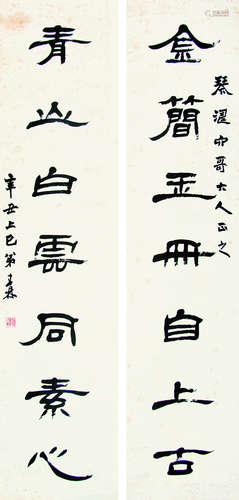 金簡玉冊自上古
琴溼內哥大人正之
青山白雲同素心
辛丑上巳翁